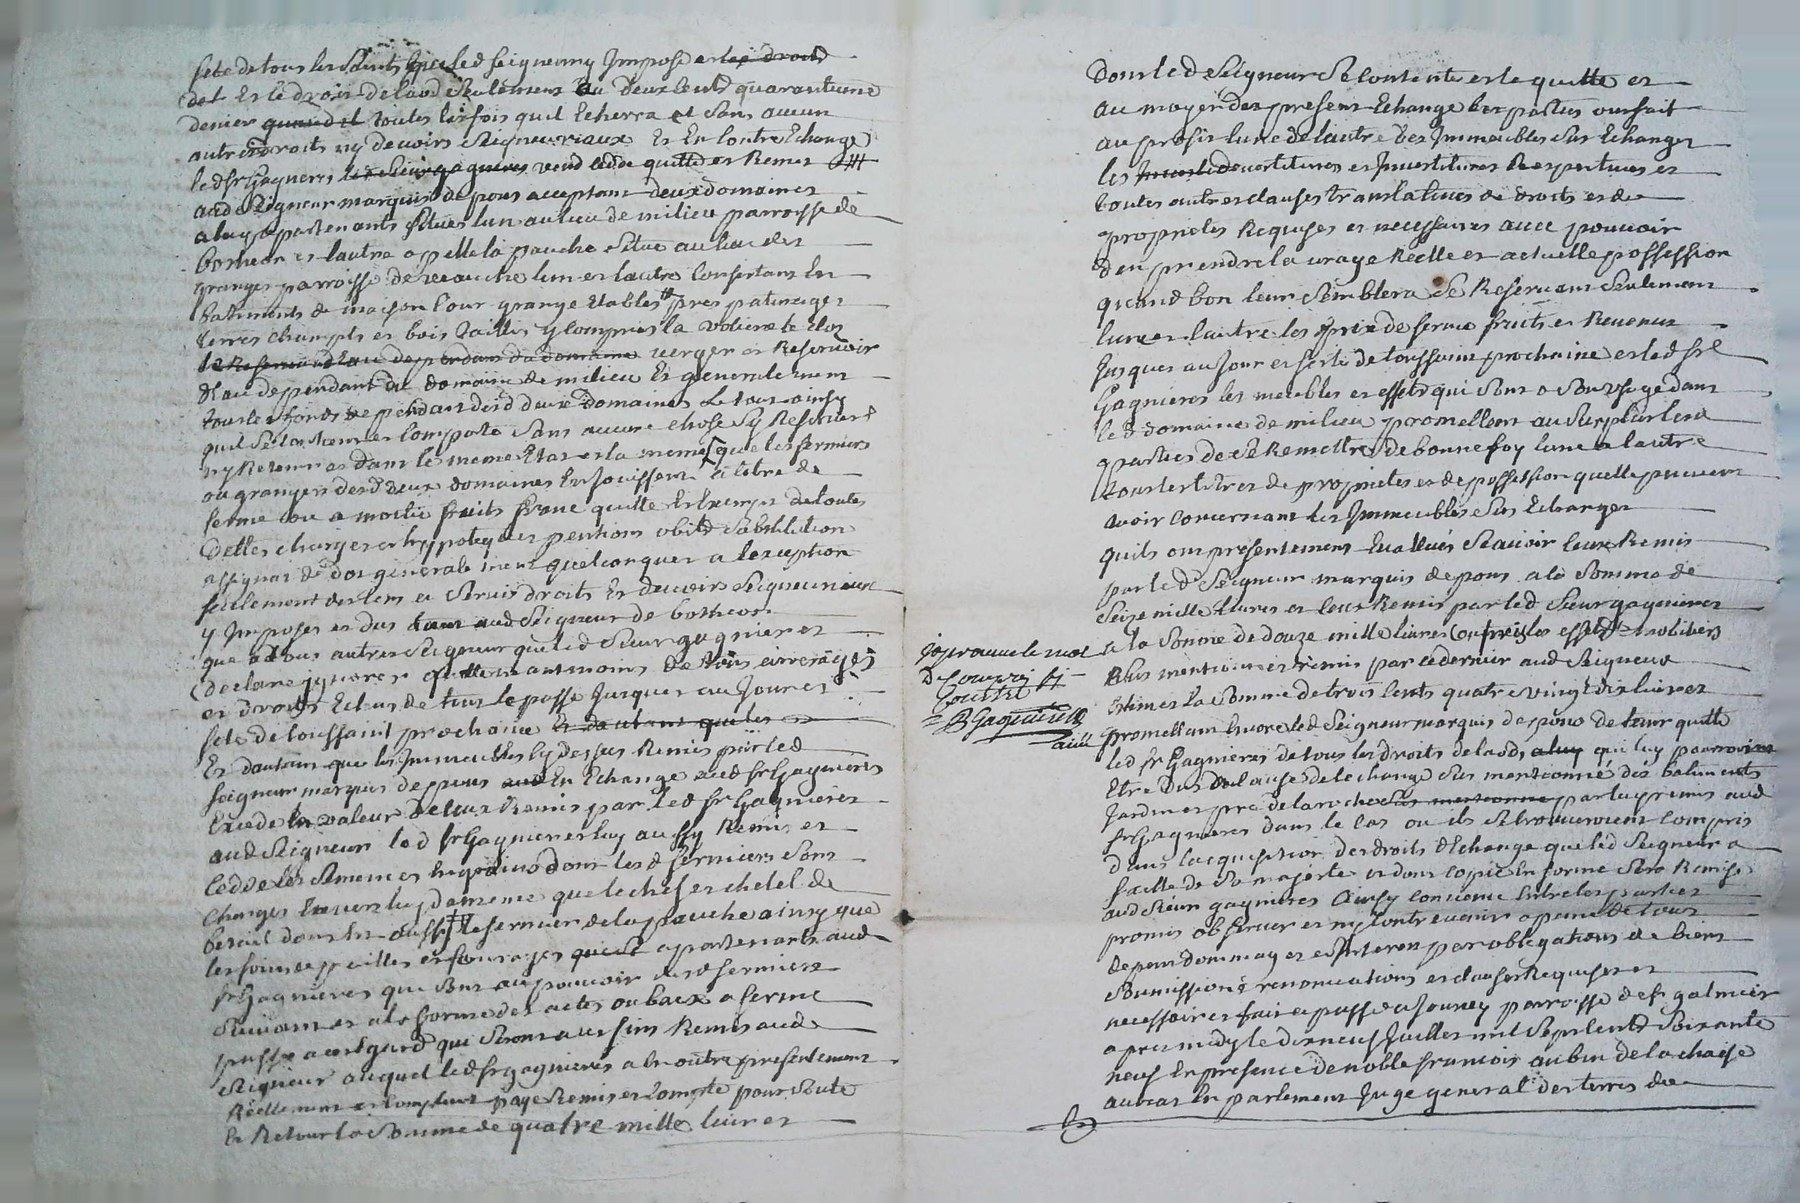 fete de tous les Saints que led seigneur y Impose et les droits
det Et le droit de laod Seulement au deux Cent quarantieme
denier quand il toutes les fois quil Echerra et Sans aucun
autres droits ny devoirs Seigneuriaux Et En Contre Echange
led sr Gagneres led sieur gagnieres vend cedde quitte et Remet
aud Seigneur marquis de pons acceptant deux domaines
a luy apartenants Situes lun au lieu de milieu parroisse de
botheon et lautre apelle la pauche situe au lieu des
granges parroisse de veauche lun et lautre Consistant En
batiments de maison Cour grange Etables pres paturages
terres champts et bois taillis y Compris la voliere le Clos
le Reservoir deau dependant du domaine verger et Reservoir
deau dependant du domaine de milieu Et generalement
tous les fonds dependant desd deux domaines Le tout ainsy
quil Se Contient et Comporte Sans aucune chose Sy Reserver
ny Retenir et dans le meme Etat et la meme que les fermiers
ou grangers desd deux domaines En Jouissent a titre de
ferme ou a moitie fruits franc quitte Et Exempt de toutes
dettes charges et hypoteques pentions obits Substitution
assignat de dot generalement quelconques a lexception
seullement des Cens et Servis droits Et devoirs Seigneuriaux
y Imposes et dus tant aud Seigneur de botheon
que a tous autres Seigneur que led Sieur gagnieres
declare ignorer quitte neantmoins de tous arrerages
et droits Echus de tout le passe Jusques au Jour et
fete de toussaint prochaine Et dautant que les
Et dautant que les Immeubles Cy dessus Remis par led
Seigneur marquis de pons aud En Echange aud sr Gagnieres
Excede la valeur de Ceux Remis par led sr Gagnieres
aud Seigneur led sr Gagnieres luy a aussy Remis et
Cedde les Semences En grains dont lesd fermiers Sont
Charges Envers luy de meme que le chef et chetel de
betail dont Est aussy le fermier de la pauche ainsy que
les foins et pailles et fourages quiest apartenants aud
sr Gagnieres qui Sont au pouvoir desd fermiers
Suivant et a la forme des actes ou baux a ferme
passe a cet Egard qui Seront aux fins Remis aud
Seigneur auquel led sr gagnieres a En outre presentement
Reellement et Comptant paye Remis et Compte pour Soute
En Retour la Somme de quatre mille livres
Japrouve le mot
De
Courtet
B Gagnieres
dont led Seigneur Se Contente et le quitte et
au moyen des present Echange les parties ont fait
au profit lune de lautre des Immeubles Sus Echanges
les devestitures et Investitures Respectives et
toutes autres clauses translatives de droits et de
proprietes Requises et necessaires avec pouvoir
den prendre la vraye Reelle et actuelle possession
quand bon leur Semblera Se Reservant Seulement
lune et lautre les prix de ferme fruits et Revenus
Jusques au Jour et fete de toussaint prochaine et led sr
Gagnieres les meubles et effets qui Sont a Son usage dans
led domaine de milieu promettent au Surplus lesd
parties de Se Remettre de bonne foy lune a lautre
tous les titres de proprietes et de possession quelle peuvent
avoir Concernant les Immeubles Sus Echanges
quils ont presentement Evallues Scavoir Ceux Remis
par led Seigneur marquis de pons a la Somme de
Seize mille livres et Ceux Remis par led Sieur gagnieres
a la Somme de douze mille livres Compris les effets mobiliers
plus mentionnes Remis par ce dernier aud Seigneur
Estimes la Somme de trois Cents quatre vingt dix livres
promettant Encore led Seigneur marquis de pons de tenir quitte
led sr Gagnieres de tous les droits de laods a luy qui luy pourroient
Etre Dus a Cause de lechange Sus mentionné des batiments
Jardin et pré de la roche Sus mentionne par luy remis aud
sr Gagnieres dans le Cas ou ils Se trouveroient Compris
dans lacquisition des droits dEchange que led Seigneur a
faitte de Sa majesté et dont Copie En forme Sera Remise
aud Sieur gagnieres Ainsy Convenu Entre les parties
promis observer et ny Contrevenir a peine de tous
depens dommages et Interets par obligations de biens
Soumissions renonciations et clauses Requises et
necessaires fait et passe a Jourcey parroisse de st galmier
apres midy le dixneuf Juillet mil Sept Cent Soixante
neuf En presence de noble francois aubin de la chaise
avocat En parlement Juge general des terres de